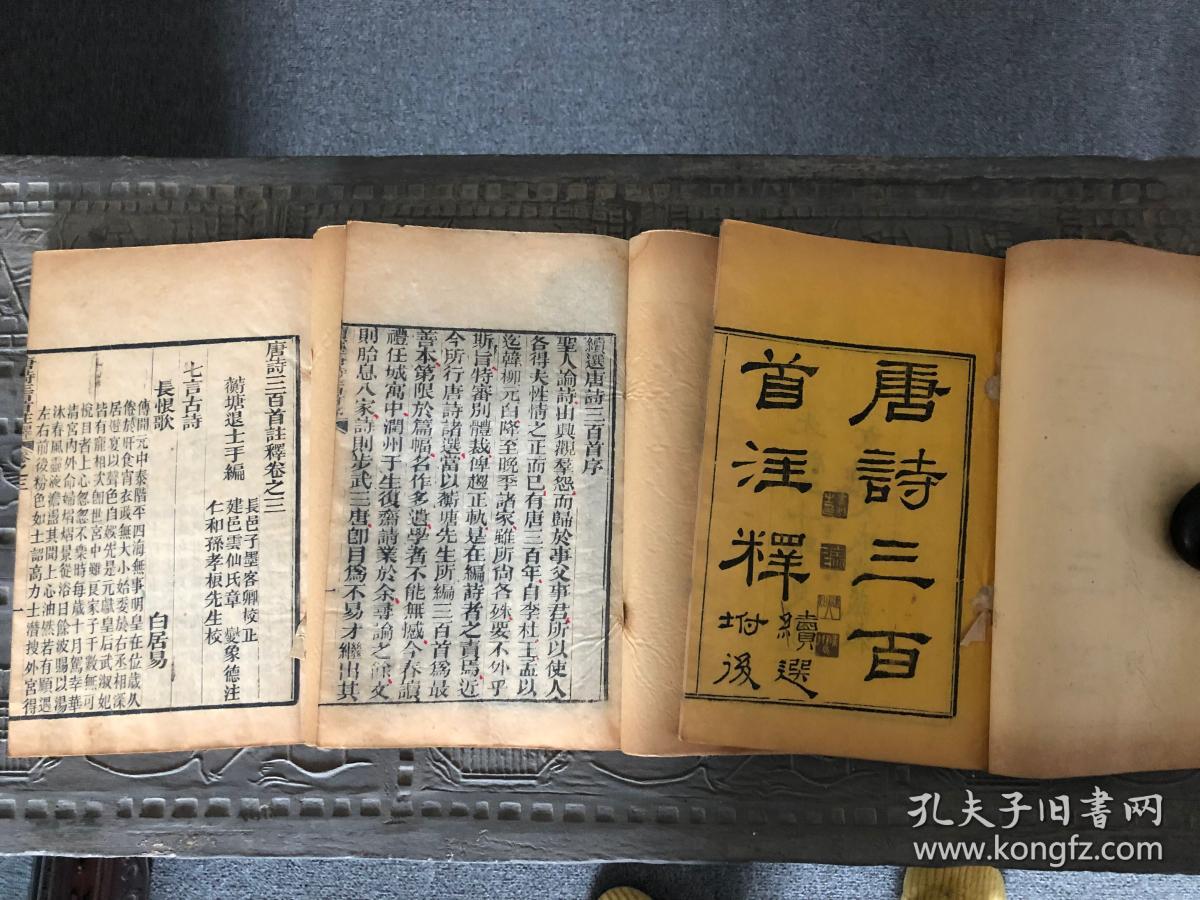 唐詩三百
首注釋
續選
坿後
續選唐詩三百首序
聖人論詩由興觀羣怨而歸於事父事君所以使人
各得夫性情之正而已有唐三百年自李杜王孟以
迄韓柳元白降至晚季諸家雖所尚各殊要不外乎
斯旨特審別體裁俾趨正軌是在編詩者之責焉近
今所行唐詩諸選當以蘅塘先生所編三百首為最
善本第限於篇幅名作多遺學者不能無憾今春讀
禮任城寓中潤州于生復齋請業於余尋論之餘文
則胎息八家詩則步武三唐卽目為不易才繼出其
一
唐詩三百首註釋卷之三
蘅塘退士手編
長邑子墨客卿校正
建邑雲仙氏章 燮象德注
仁和孫孝根先生校
七言古詩
長恨歌
白居易
傳開元中泰階平四海無事明皇在位歲久
倦於旰食宵衣政無大小始委於右丞相深
居遊宴以聲色自娛先是元獻皇后武淑妃
皆有寵相次卽世宮中雖良家子千數無可
悅目者上心忽忽不樂時每歲十月駕幸華
清宮內外命婦熠燿景從浴日餘波賜以湯
沐春風靈液澹蕩其間上心油然若有顧遇
左右前後粉色如土詔高力士潛搜外宮得
一
孔夫子旧書网
www.kongfz.com